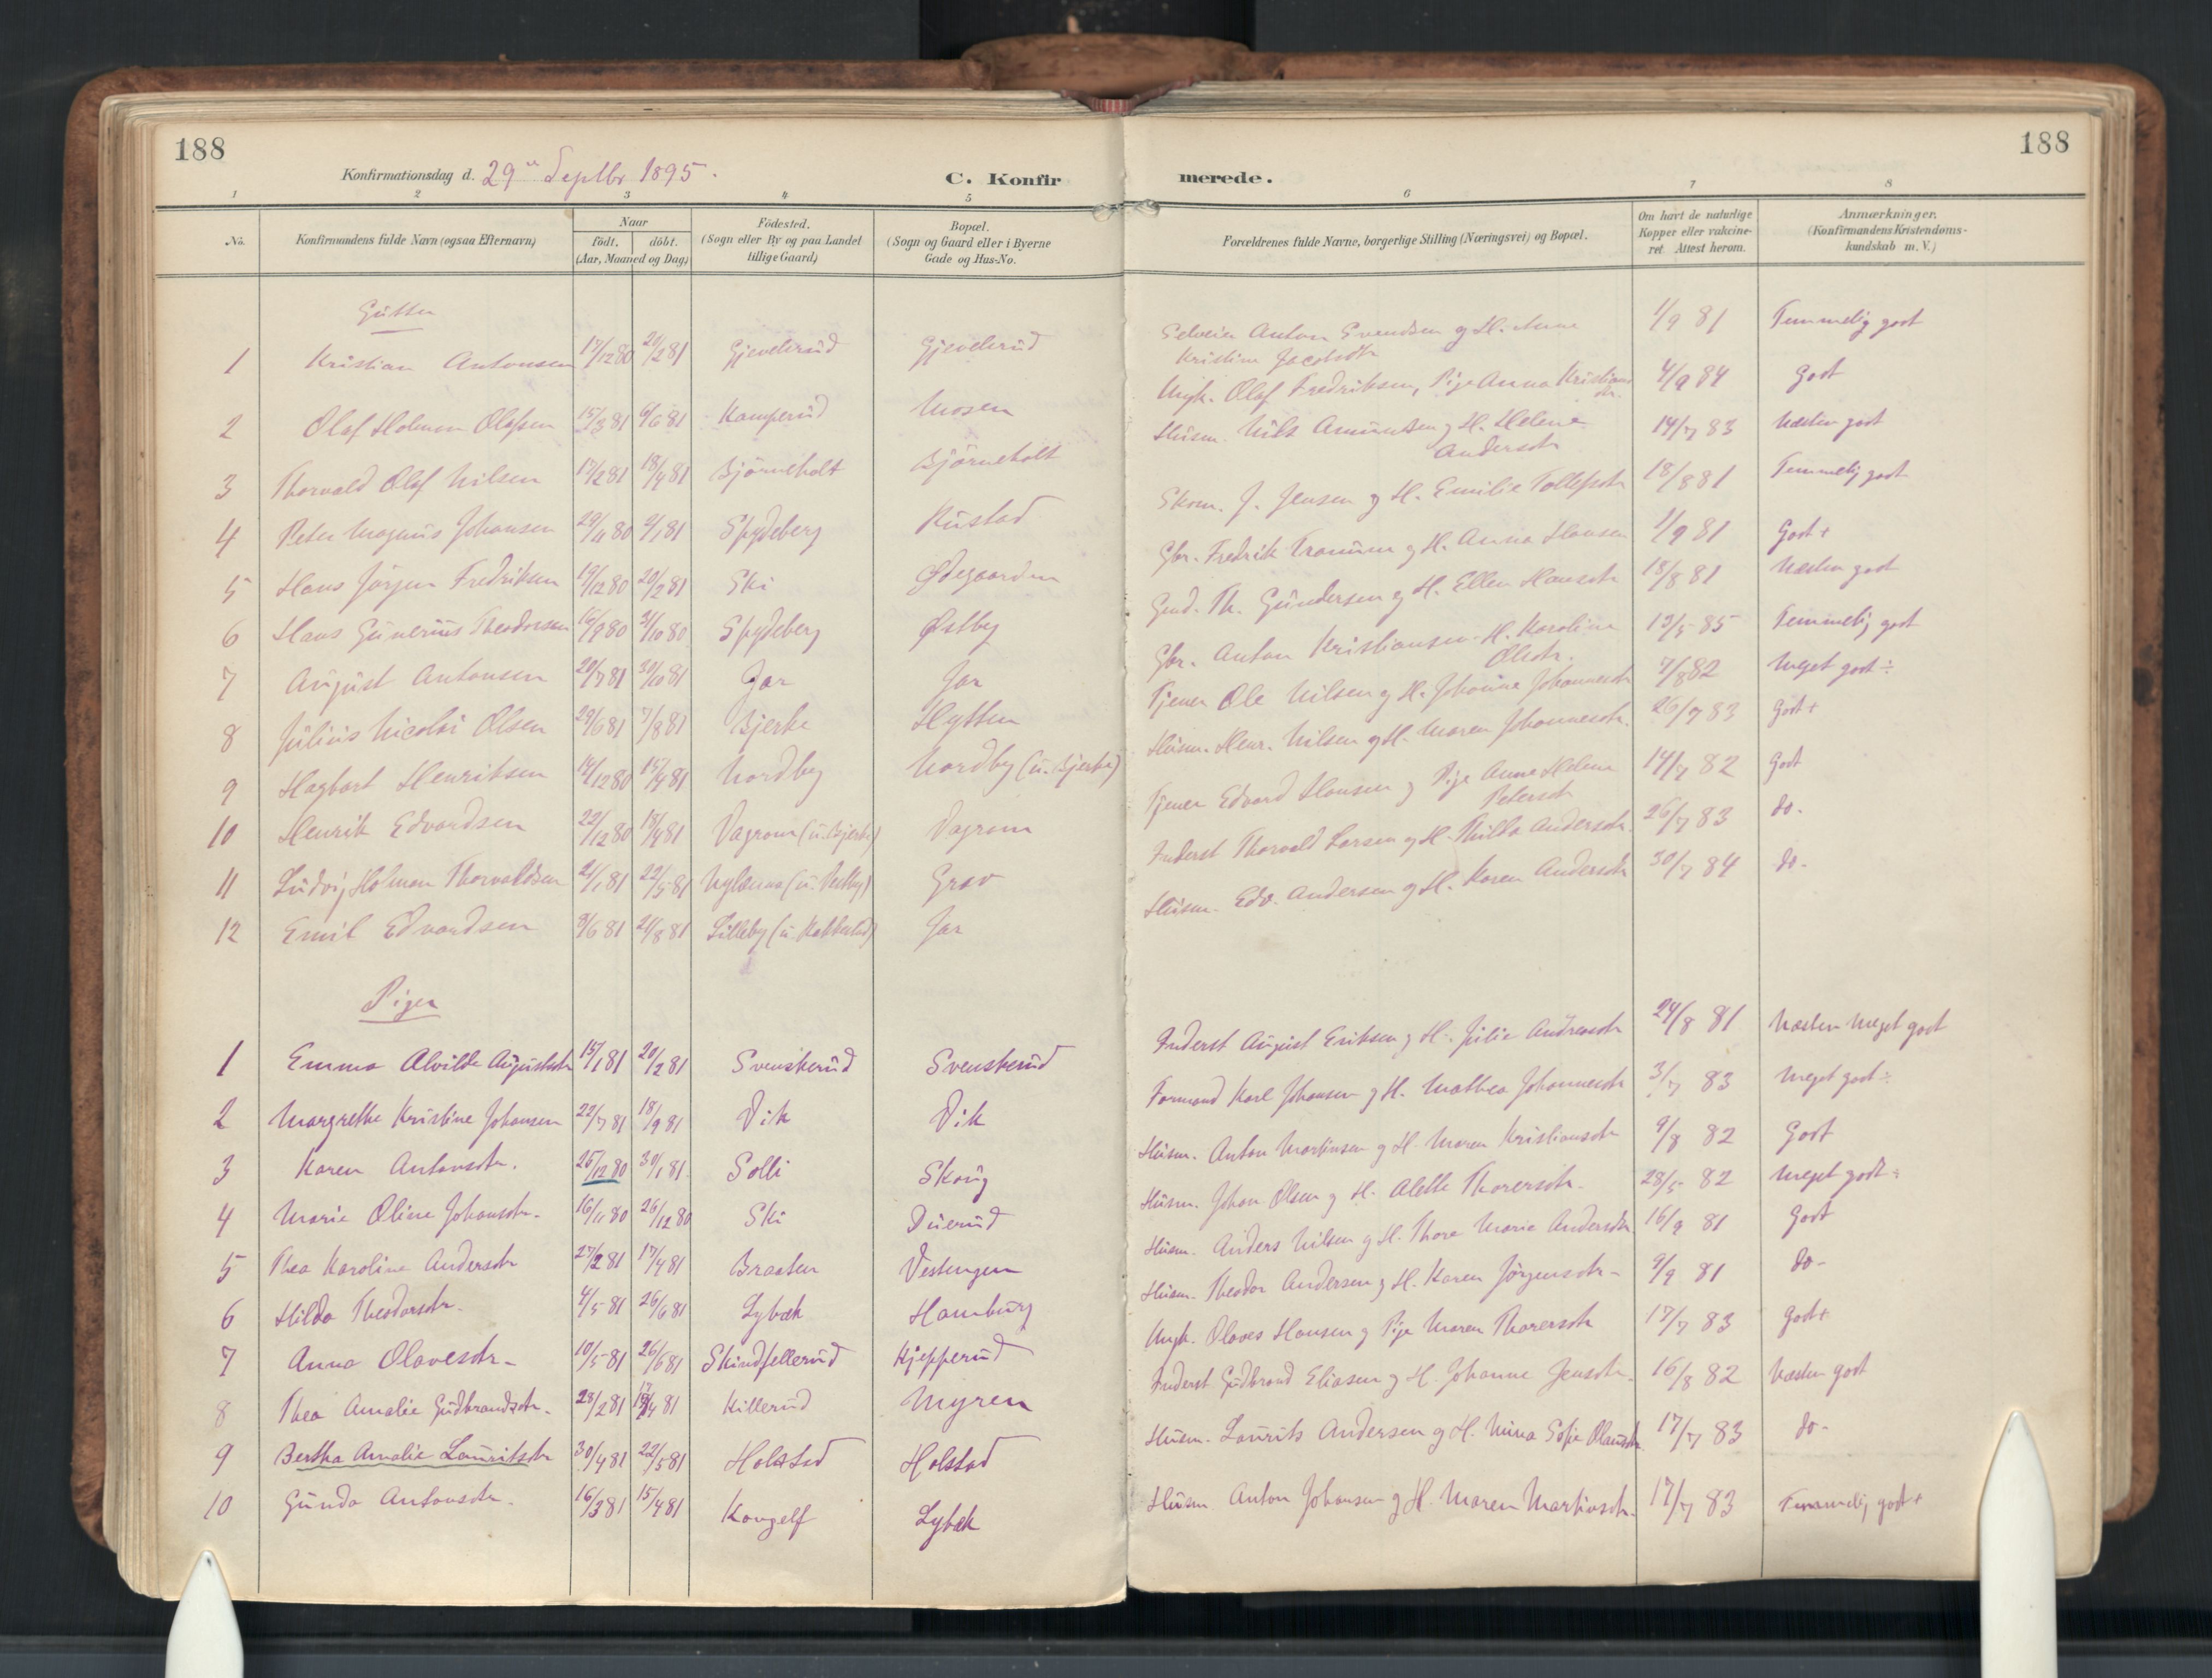 188
188
Konfirmationsdag d. 29de Septbr 1895.
C. Konfirmerede.
1 2 3 4 5 6 7 8
No.
Konfirmandens fulde Navn (ogsaa Efternavn)
Naar
födt. döbt.
(Aar, Maaned og Dag)
Födested.
(Sogn eller By og paa Landet
tillige Gaard)
Bopæl.
(Sogn og Gaard eller i Byerne
Gade og Hus-No.
Forældrenes fulde Navne, borgerlige Stilling (Næringsvei) og Bopæl.
Om havt de naturlige
Kopper eller vakcine-
ret. Attest herom.
Anmærkninger.
(Konfirmandens Kristendoms-
kundskab m. V.)
Gutter
1 Kristian Antonsen 17/12 80 20/2 81 Gjevelsrud Gjevelsrud Selveier Anton Svendsen og H. Anne Kristine Jacobsdtr 1/9 81 Temmelig godt
2 Olaf Holman Olafsen 15/3 81 6/6 81 Kamperud Mosen Ungk. Olaf Fredriksen, Pige Anna Kristiansdtr. 4/9 84 Godt
3 Thorvald Olaf Nilsen 17/2 81 18/4 81 Björneholt Björneholt Husm. Nils Amundsen og H. Helene Andersdtr 14/7 83 Næsten godt
4 Peter Magnus Johansen 29/11 80 9/1 81 Spydeberg Rustad Skom. J. Jensen og H. Emilie Tollefsdtr 18/8 81 Temmelig godt
5 Hans Jörgen Fredriksen 19/12 80 20/2 81 Ski Ödegaarden Gbr. Fredrik Tranum og H. Anna Hansen 1/9 81 Godt+
6 Hans Gunerius Theodorsen 16/9 80 31/10 80 Spydeberg Østby Gmd. Th. Gundersen og H. Ellen Hansdtr 18/8 81 Næsten godt
7 August Antonsen 20/7 81 30/10 81 Jar Jar Gbr. Anton Kristiansen H. Karoline Olsdtr. 13/5 85 Temmelig godt
8 Julius Nicolai Olsen 29/6 81 7/8 81 Bjerke Hytten Tjener Ole Nilsen og H. Johanne Johannesdtr 7/8 82 Meget godt÷
9 Hagbart Henriksen 14/12 80 15/4 81 Nordby Nordby (u. Bjerke) Husm. Henr. Nilsen og H. Maren Johannesdtr. 26/7 83 Godt+
10 Henrik Edvardsen 22/12 80 18/4 81 Vagrom (u. Bjerke) Vagrom Tjener Edvard Hansen og Pige Anne Helene Petersdtr 14/7 82 Godt
11 Ludvig Holman Thorvaldsen 21/1 81 22/5 81 Nylænna (u. Vestby) Grav Inderst Thorvald Larsen og H. Thilda Andersdtr. 26/7 83 do.
12 Emil Edvardsen 9/6 81 21/8 81 Lilleby (u. Kakkestad) Jar Husm. Edv. Andersen og H. Karen Andersdtr 30/7 84 do.
Piger
1 Emma Alvilde Augustsdtr 15/1 81 20/2 81 Svenskerud Svenskerud Inderst August Eriksen og H. Julie Andreasdtr 24/8 81 Næsten meget godt
2 Margrethe Kristine Johansen 22/7 81 18/9 81 Vik Vik Formand Karl Johansen og H. Mathea Johannesdtr 3/7 83 Meget godt÷
3 Karen Antonsdtr. 25/12 80 30/1 81 Solli Skoug Husm. Anton Martinsen og H. Maren Kristiansdtr 9/8 82 Godt
4 Marie Oline Johansdtr. 16/11 80 26/12 80 Ski Duerud Husm. Johan Olsen og H. Alette Thorersdtr. 28/5 82 Meget godt÷
5 Thea Karoline Andersdtr 27/2 81 17/4 81 Braaten Vestengen Husm. Anders Nilsen og H. Thora Marie Andersdtr 16/9 81 Godt
6 Hilda Theodorsdtr. 4/5 81 26/6 81 Lybæk Hamburg Husm. Theodor Andersen og H. Karen Jörgensdtr 9/9 81 do
7 Anna Olavesdtr. 10/5 81 26/6 81 Skindfellerud Kjepperud Ungk. Olaves Hansen og Pige Maren Thorersdtr 17/7 83 Godt+
8 Thea Amalie Gudbrandsdtr. 28/2 81 17/4 81 Killerud Myren Inderst Gudbrand Eliasen og H. Johanne Jensdtr. 16/8 82 Næsten godt
9 Bertha Amalie Lauritsdtr 30/4 81 22/5 81 Holstad Holstad Husm. Laurits Andersen og H. Mina Sofie Olausdtr. 17/7 83 do
10 Gunda Antonsdtr. 16/3 81 15/4 81 Kongelf Lybæk Husm. Anton Johansen og H. Maren Martinsdtr. 17/7 83 Temmelig godt+